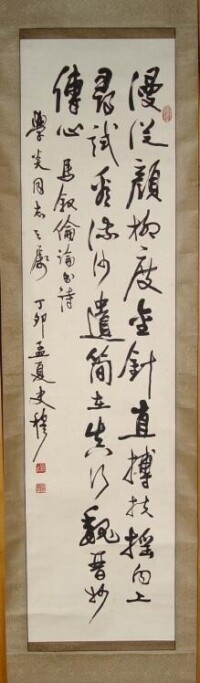 漫從顏柳度金針直搏扶搖向上
尋試看流沙遺簡在真行魏晉妙
傳心 馬叙倫論書詩
學炎同志之屬 丁卯孟夏史穆